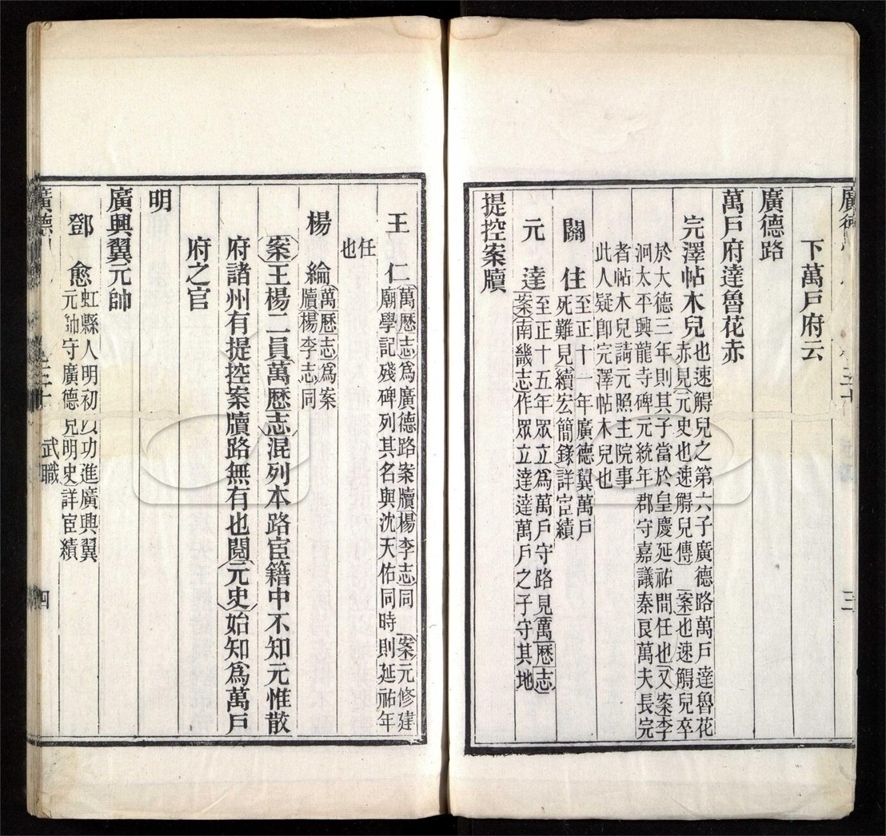 下萬戸府云
廣德路
萬戸府達魯花赤
完澤帖木兒也速䚟兒之第六子廣德路萬戸達魯花
赤見元史也速䚟兒傳 案也速䚟兒卒
於大德三年則其子當於皇慶延祐間任也又案李
洞太平興龍寺碑元統年郡守嘉議秦艮萬夫長完
者帖木兒請元照主院事
此人疑卽完澤帖木兒也
關住至正十一年廣德翼萬戸
死難見續宏簡錄詳宦績
元達至正十五年眾立爲萬戸守路見萬歷志
案南畿志作眾立達達萬戸之子守其地
提控案牘
三
王仁萬歷志爲廣德路案牘楊李志同 案元修建
廟學記殘碑列其名與沈天佑同時則延祐年
任
也
楊綸萬歷志爲案
牘楊李志同
案王楊二員萬歷志混列本路宦籍中不知元惟散
府諸州有提控案牘路無有也閱元史始知爲萬戸
府之官
明
廣興翼元帥
鄧愈虹縣人明初以功進廣興翼
元帥守廣德見明史詳宦績
廣德
武職
四